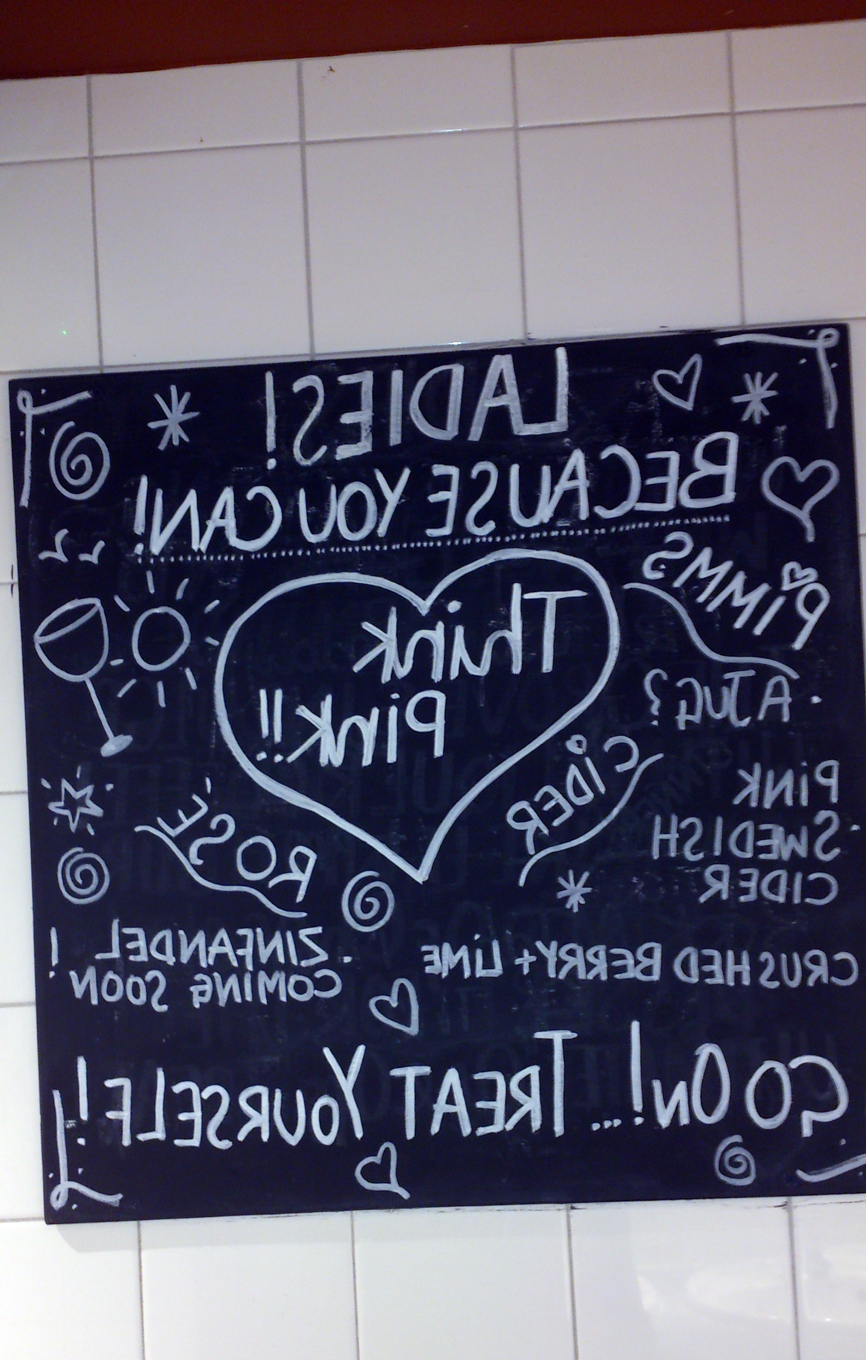 LADIES!
BECAUSE YOU CAN!
PIMMS
Think
Pink!!
· A JUG?
CIDER
PINK
SWEDISH
CIDER
ROSE
CRUSHED BERRY + LIME
· ZINFANDEL !
COMING SOON
GO ON!... TREAT YOURSELF!